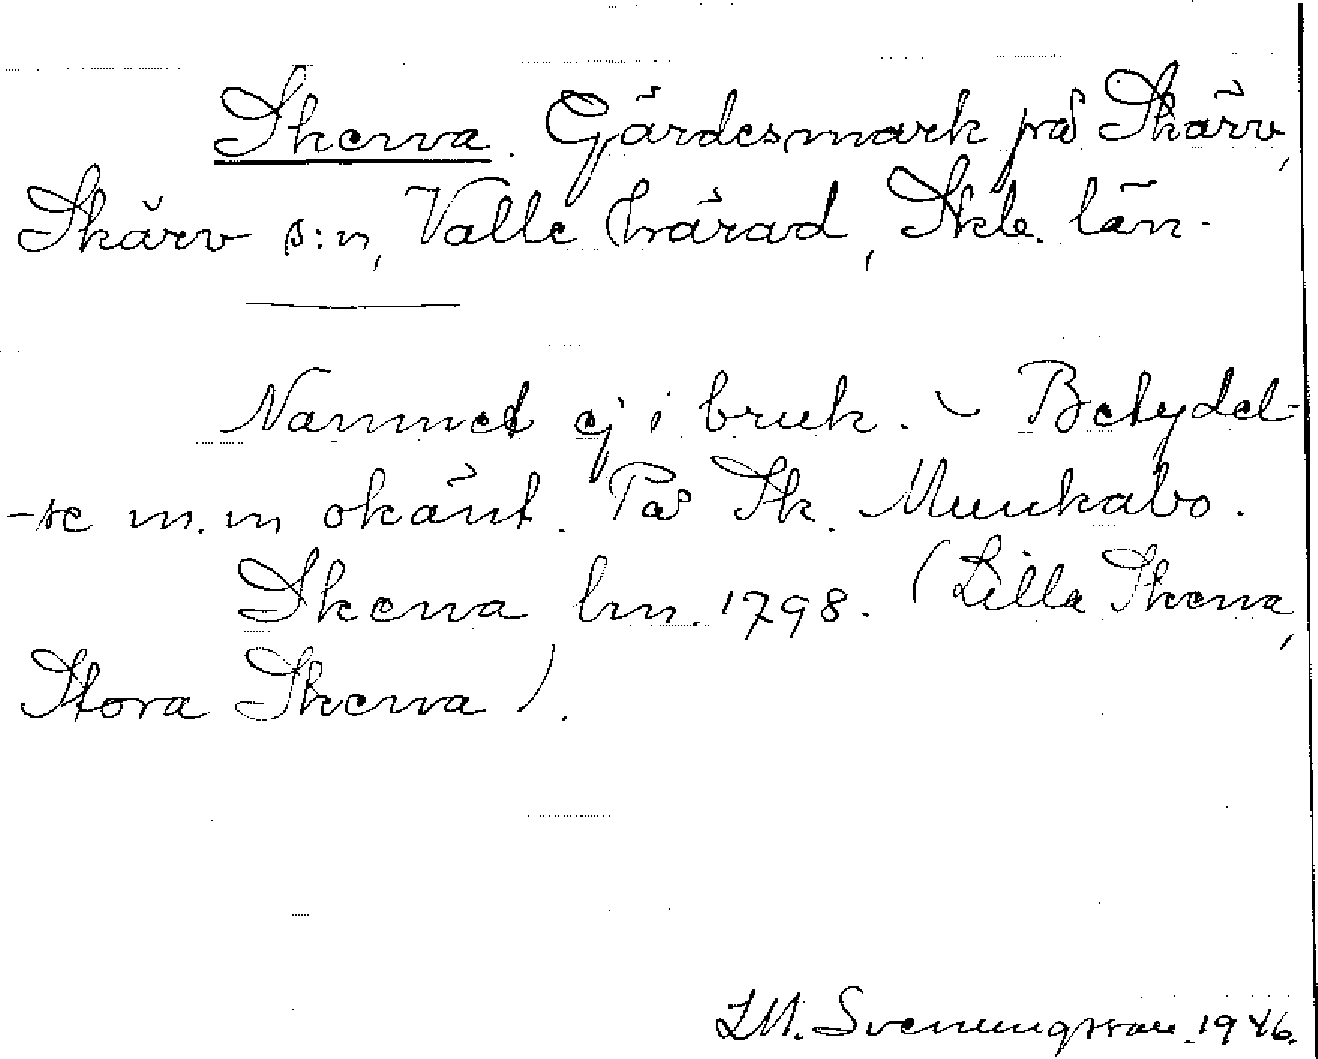 Skerva. Gärdesmark på Skärv,
Skärv s:n, Valle härad, Skb. län.
Namnet ej i bruk. - Betydel-
-se m.m okänt. På Sk. Munkabo.
Skerva lm. 1798. (Lilla Skerva,
Stora Skerva).
I.M. Svenungsson 1946.